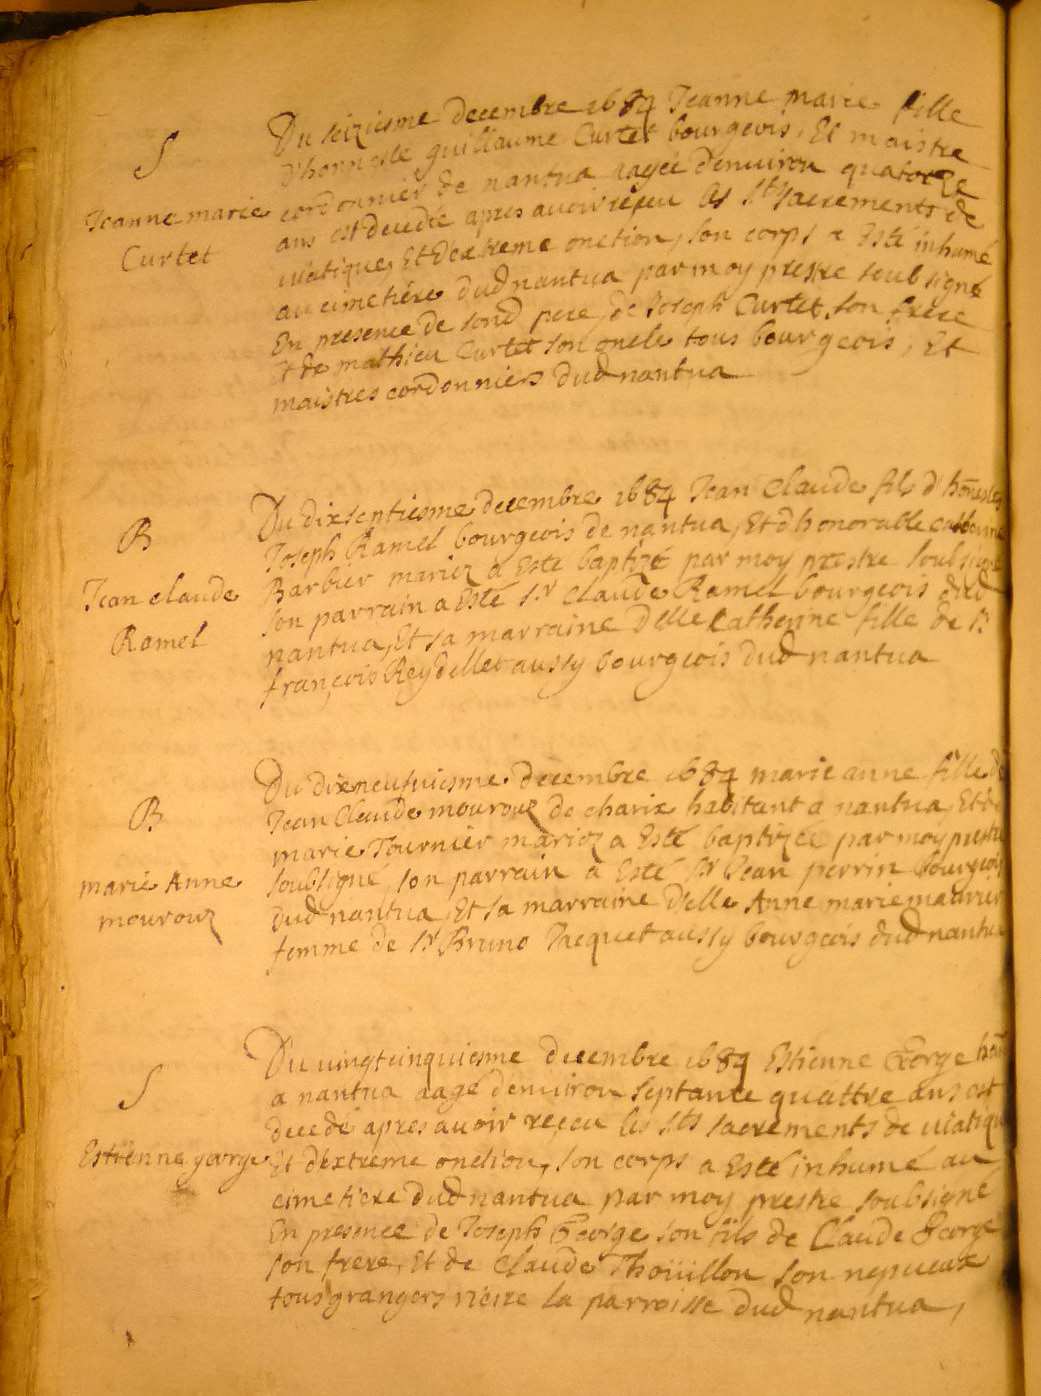 S
Jeanne marie
Curtet
Du seiziesme decembre 1684 Jeanne marie fille
d'honneste guillaume Curtet bourgeois, Et maistre
cordonnier de nantua aagée d'enuiron quatorze
ans est decedée apres auoir reçeu les Sts sacrements de
uiatique, Et d'extreme onction, son corps a Esté inhumé
au cimetiére dud nantua par moy prestre soubsigné
En presence de sond pere, de Joseph Curtet son frere
Et de mathieu Curtet son oncle tous bourgeois, Et
maistres cordonniers dud nantua
B
Jean claude
Ramel
Du dixseptiesme decembre 1684 Jean Claude fils d'
Joseph Ramel bourgeois de nantua, Et d'honorable
Barbier mariez a Esté baptizé par moy prestre soubsigné
son parrain a Esté sr Claude Ramel bourgeois dud
nantua, Et sa marraine Delle Catherine fille de sr
françois Reydellet aussy bourgeois dud nantua
B
marie Anne
mourouz
Du dixneufuiesme decembre 1684 marie anne fille de
Jean Claude mourouz de charix habitant a nantua, Et de
marie Tournier mariez a Esté baptizée par moy prestre
soubsigné, son parrain a Esté sr Jean perrin bourgeois
dud nantua, Et sa marraine d'elle Anne marie maurier
femme de sr Bruno Jacquet aussy bourgeois dud nantua
S
Estienne george
Du uingtcinquiesme decembre 1684 Estienne George
a nantua aagé d'enuiron septante quattre ans est
decedé apres auoir reçeu les sts sacrements de uiatique
Et d'extreme onction, son corps a Esté inhumé au
cimetiere dud nantua par moy prestre soubsigné
En presence de Joseph George son fils de Claude George
son frere, Et de Claude Thoüillon son nepueux
tous grangers riére la parroisse dud nantua,